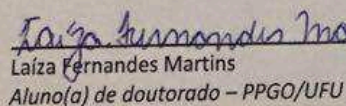 Laiza Fernandes Ma
Laíza Fernandes Martins
Aluno(a) de doutorado – PPGO/UFU